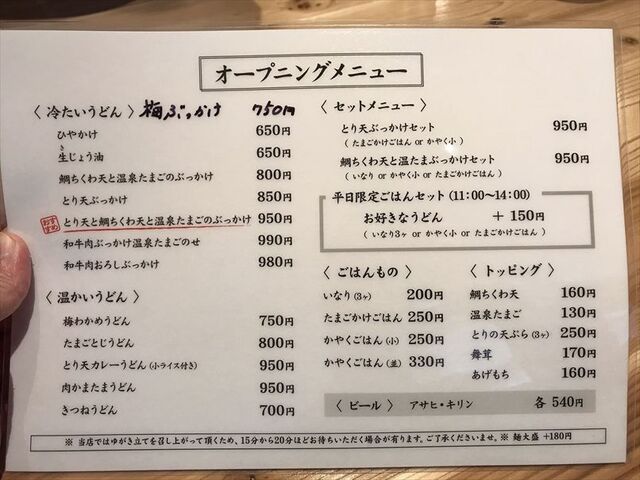 オープニングメニュー
〈 冷たいうどん 〉 梅ぶっかけ 750円
ひやかけ 650円
生じょう油 650円
鯛ちくわ天と温泉たまごのぶっかけ 800円
とり天ぶっかけ 850円
おすすめ とり天と鯛ちくわ天と温泉たまごのぶっかけ 950円
和牛肉ぶっかけ温泉たまごのせ 990円
和牛肉おろしぶっかけ 980円
〈 温かいうどん 〉
梅わかめうどん 750円
たまごとじうどん 800円
とり天カレーうどん(小ライス付き) 950円
肉かまたまうどん 950円
きつねうどん 700円
〈 セットメニュー 〉
とり天ぶっかけセット 950円
( たまごかけごはん or かやく小 )
鯛ちくわ天と温たまぶっかけセット 950円
( いなり or かやく小 or たまごかけごはん )
平日限定ごはんセット (11:00〜14:00)
お好きなうどん + 150円
( いなり3ヶ or かやく小 or たまごかけごはん )
〈 ごはんもの 〉
いなり (3ヶ) 200円
たまごかけごはん 250円
かやくごはん (小) 250円
かやくごはん (並) 330円
〈 トッピング 〉
鯛ちくわ天 160円
温泉たまご 130円
とりの天ぷら (3ヶ) 250円
舞茸 170円
あげもち 160円
〈 ビール 〉 アサヒ・キリン 各 540円
※ 当店ではゆがき立てを召し上がって頂くため、15分から20分ほどお待ちいただく場合が有ります。ご了承くださいませ。※ 麺大盛 +180円